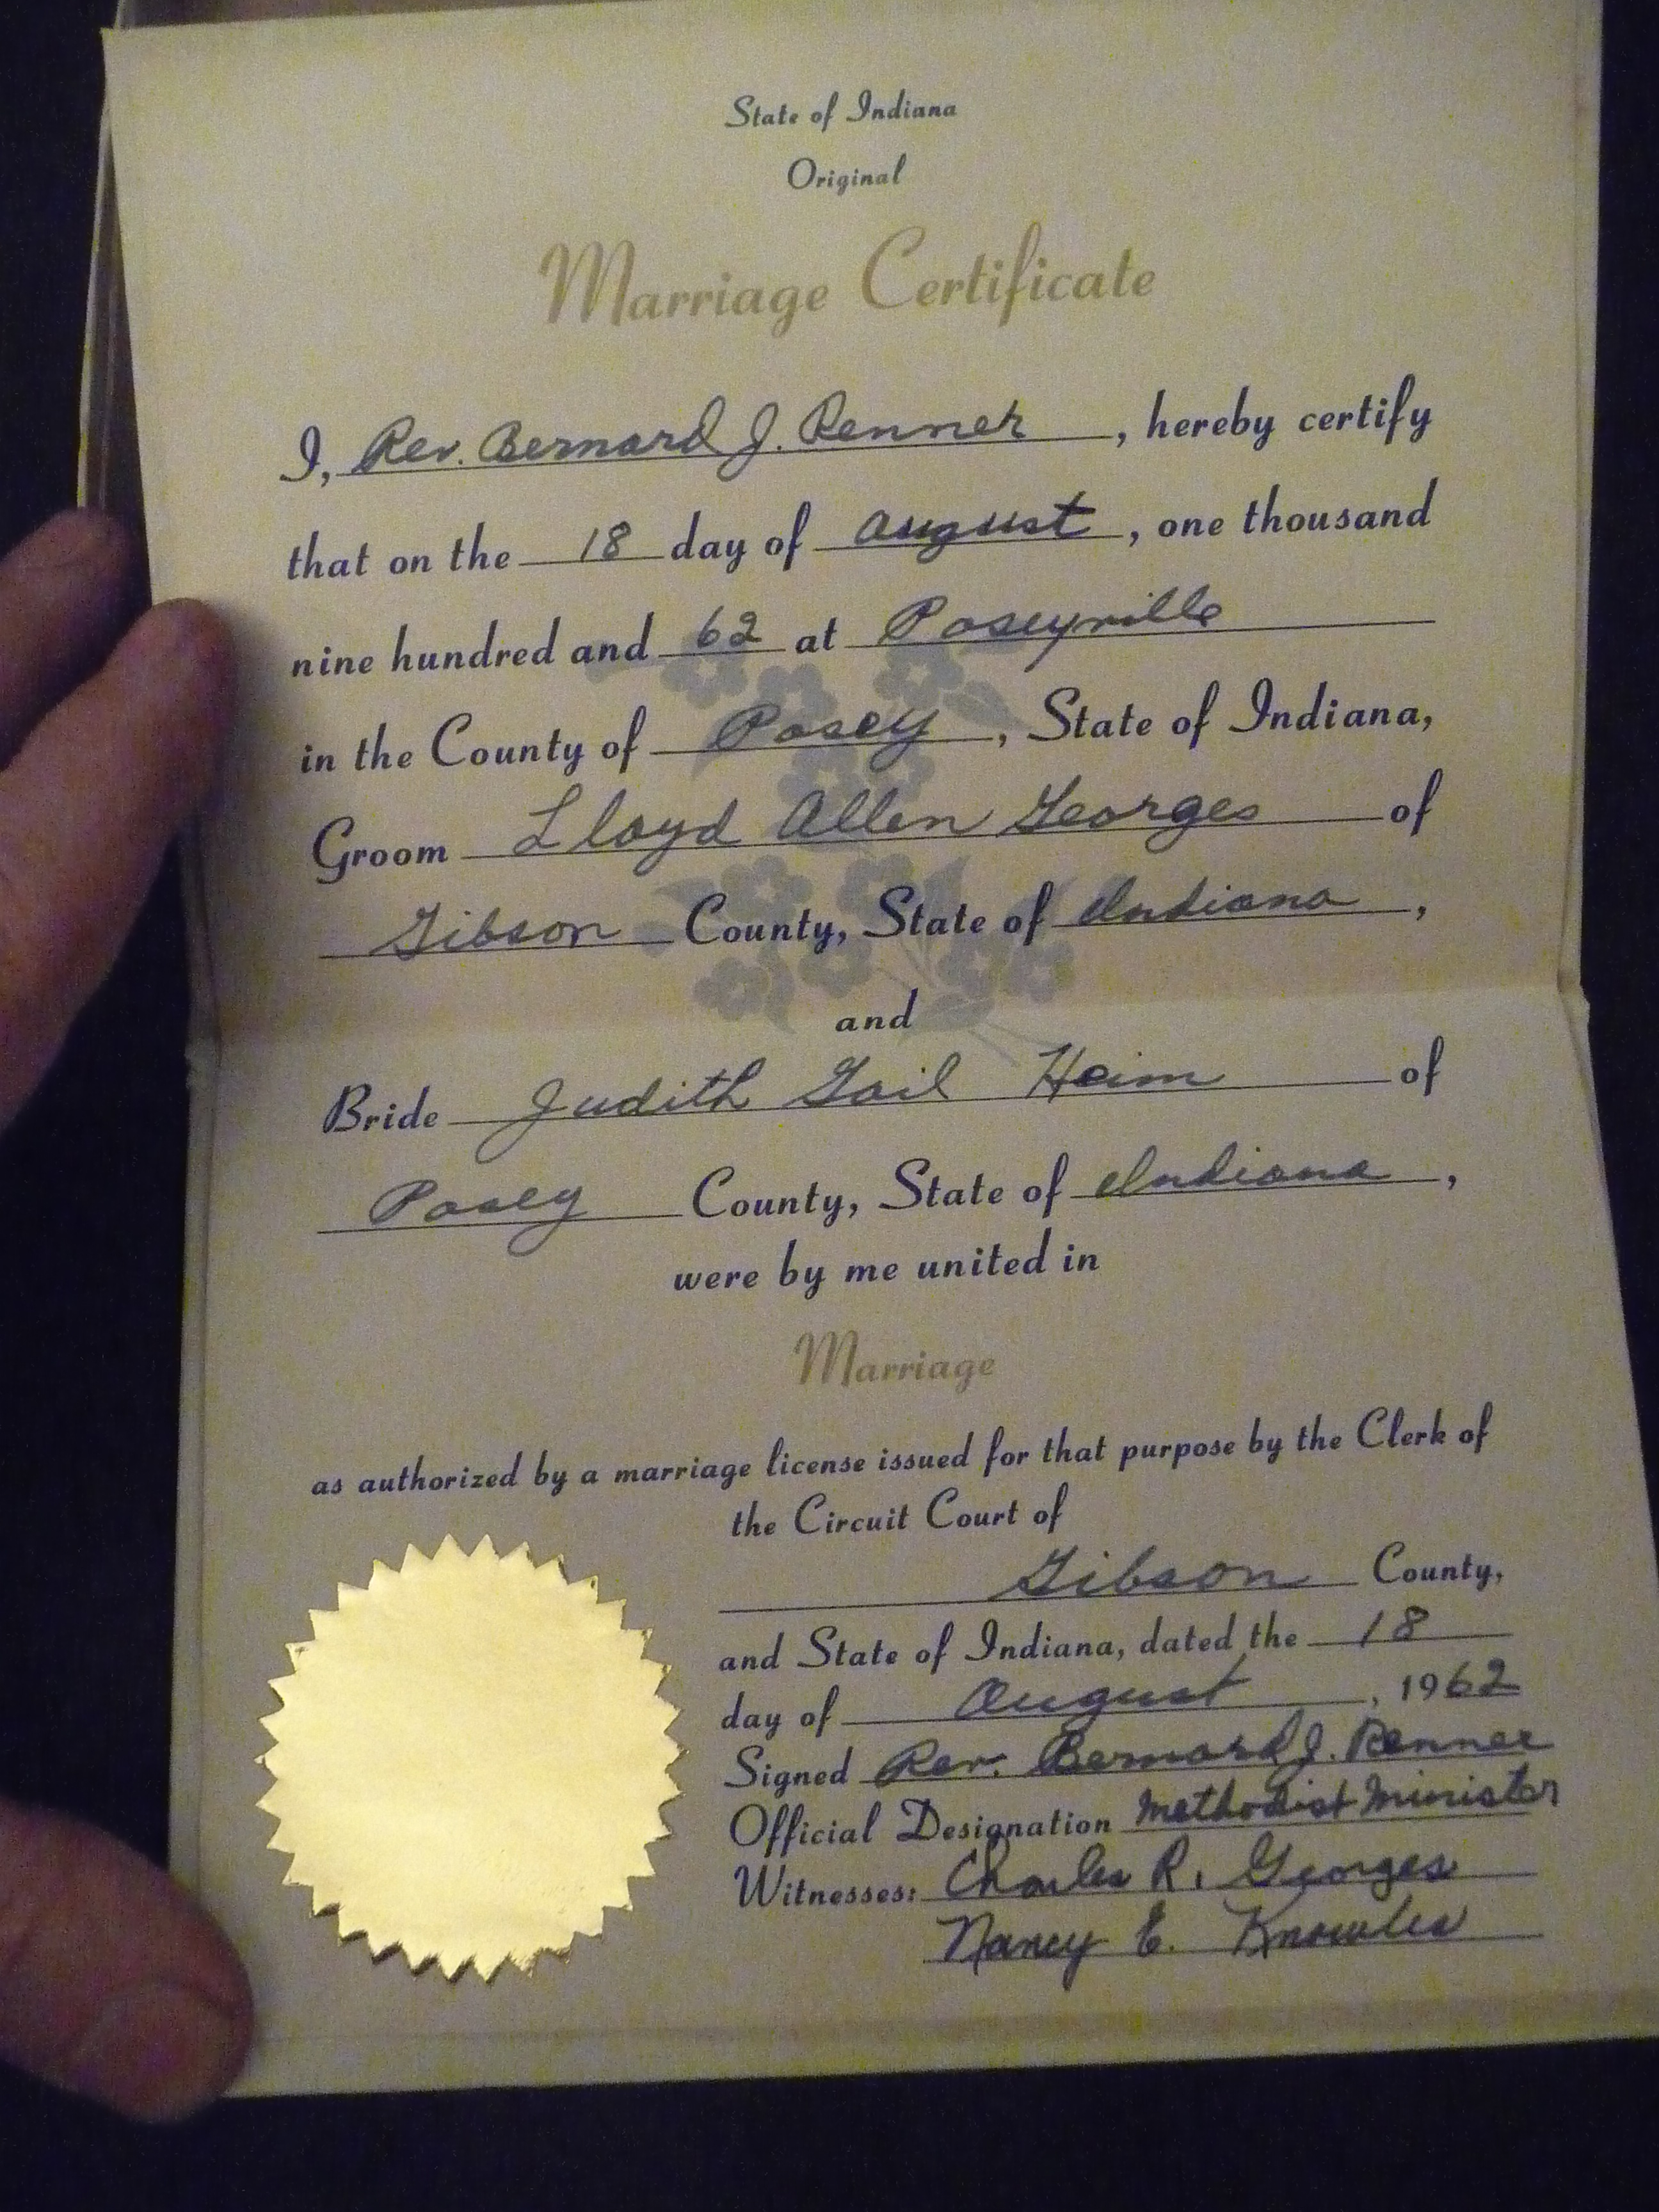 State of Indiana
Original
Marriage Certificate
I, Rev. Bernard J. Renner, hereby certify
that on the 18 day of August, one thousand
nine hundred and 62 at Poseyville
in the County of Posey, State of Indiana,
Groom Lloyd Allen Georges of
Gibson County, State of Indiana,
and
Bride Judith Gail Heim of
Posey County, State of Indiana,
were by me united in
Marriage
as authorized by a marriage license issued for that purpose by the Clerk of
the Circuit Court of
Gibson County,
and State of Indiana, dated the 18
day of August, 1962
Signed Rev. Bernard J. Renner
Official Designation Methodist Minister
Witnesses: Charles R. Georges
Nancy E. Knowles